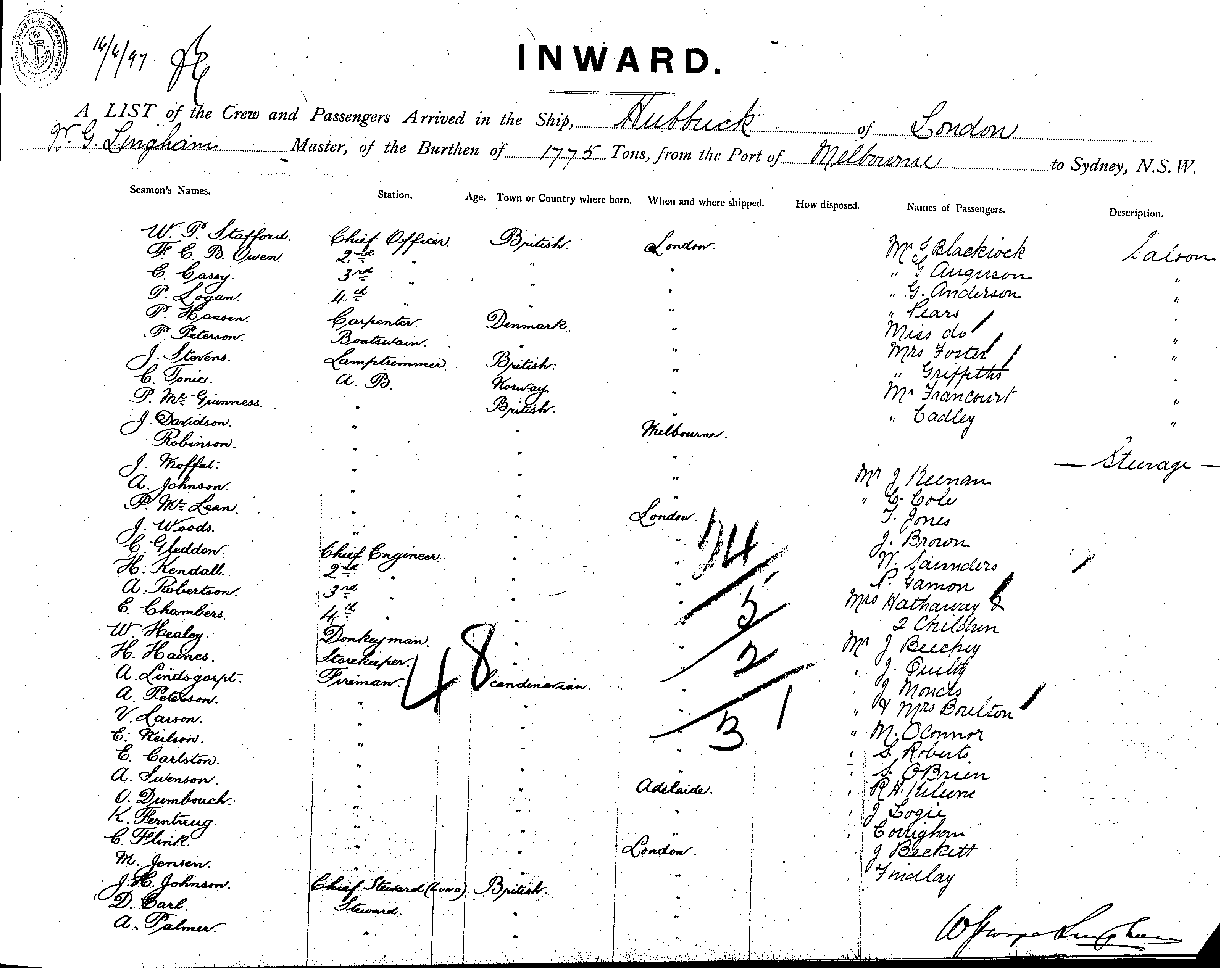 16/6/97
INWARD.
A LIST of the Crew and Passengers Arrived in the Ship, Hubbuck of London
W. G. Lingham Master, of the Burthen of 1775 Tons, from the Port of Melbourne to Sydney, N.S.W.
Seamen's Names. Station. Age. Town or Country where born. When and where shipped. How disposed. Names of Passengers. Description.
W. P. Stafford. Chief Officer British. London. Mr J Blackwock Saloon
F. E. B. Owen 2nd " " " " G Anguson "
C. Cassy. 3rd " " " " G. Anderson "
P. Logan. 4th " " " " Pears "
P. Hansen. Carpenter. Denmark. " Miss do "
P. Peterson. Boatswain. " " Mrs Foster "
J. Stevens. Lamptrimmer British. " " Griffiths "
C. Tonic. A. B. Norway. " Mr Francourt "
P. Mc Guinness. " British. " " Cadley "
J. Davidson. " " Melbourne.
Robinson. " " " — Steerage —
J. Moffat. " " " Mr J Keenan
A. Johnson. " " " " C. Cole
P. Mc Lean. " " London. T. Jones
J. Woods. " " " J. Brown
C. Gleddon. Chief Engineer " " W. Saunders
H. Kendall. 2nd " " " P. Gamon
A. Robertson. 3rd " " " Mrs Hathaway &
E. Chambers. 4th " " " 2 Children
W. Healey. Donkeyman. " " Mr J Beechey
H. Haines. Storekeeper. " " " J. Quilty
A. Lindsgorpt. Fireman. Scandinavian. " J Moncis
A. Peterson. " " " " & Mrs Boulton
V. Larson. " " " " M. OConnor
C. Neilson. " " " " S. Roberts
E. Carlston. " " " " S. OBrien
A. Swenson. " " Adelaide. " R H
O. Dumbouch. " " " " J Logie
K. Ferntrug. " " "
C. Flink. " " London. " J Beckett
M. Jensen. " " " " Findlay
J. H. Johnson. Chief Steward British. "
D. Carl. Steward. " "
A. Palmer. " " "
48
74
5
2
3 1
W George Lingham